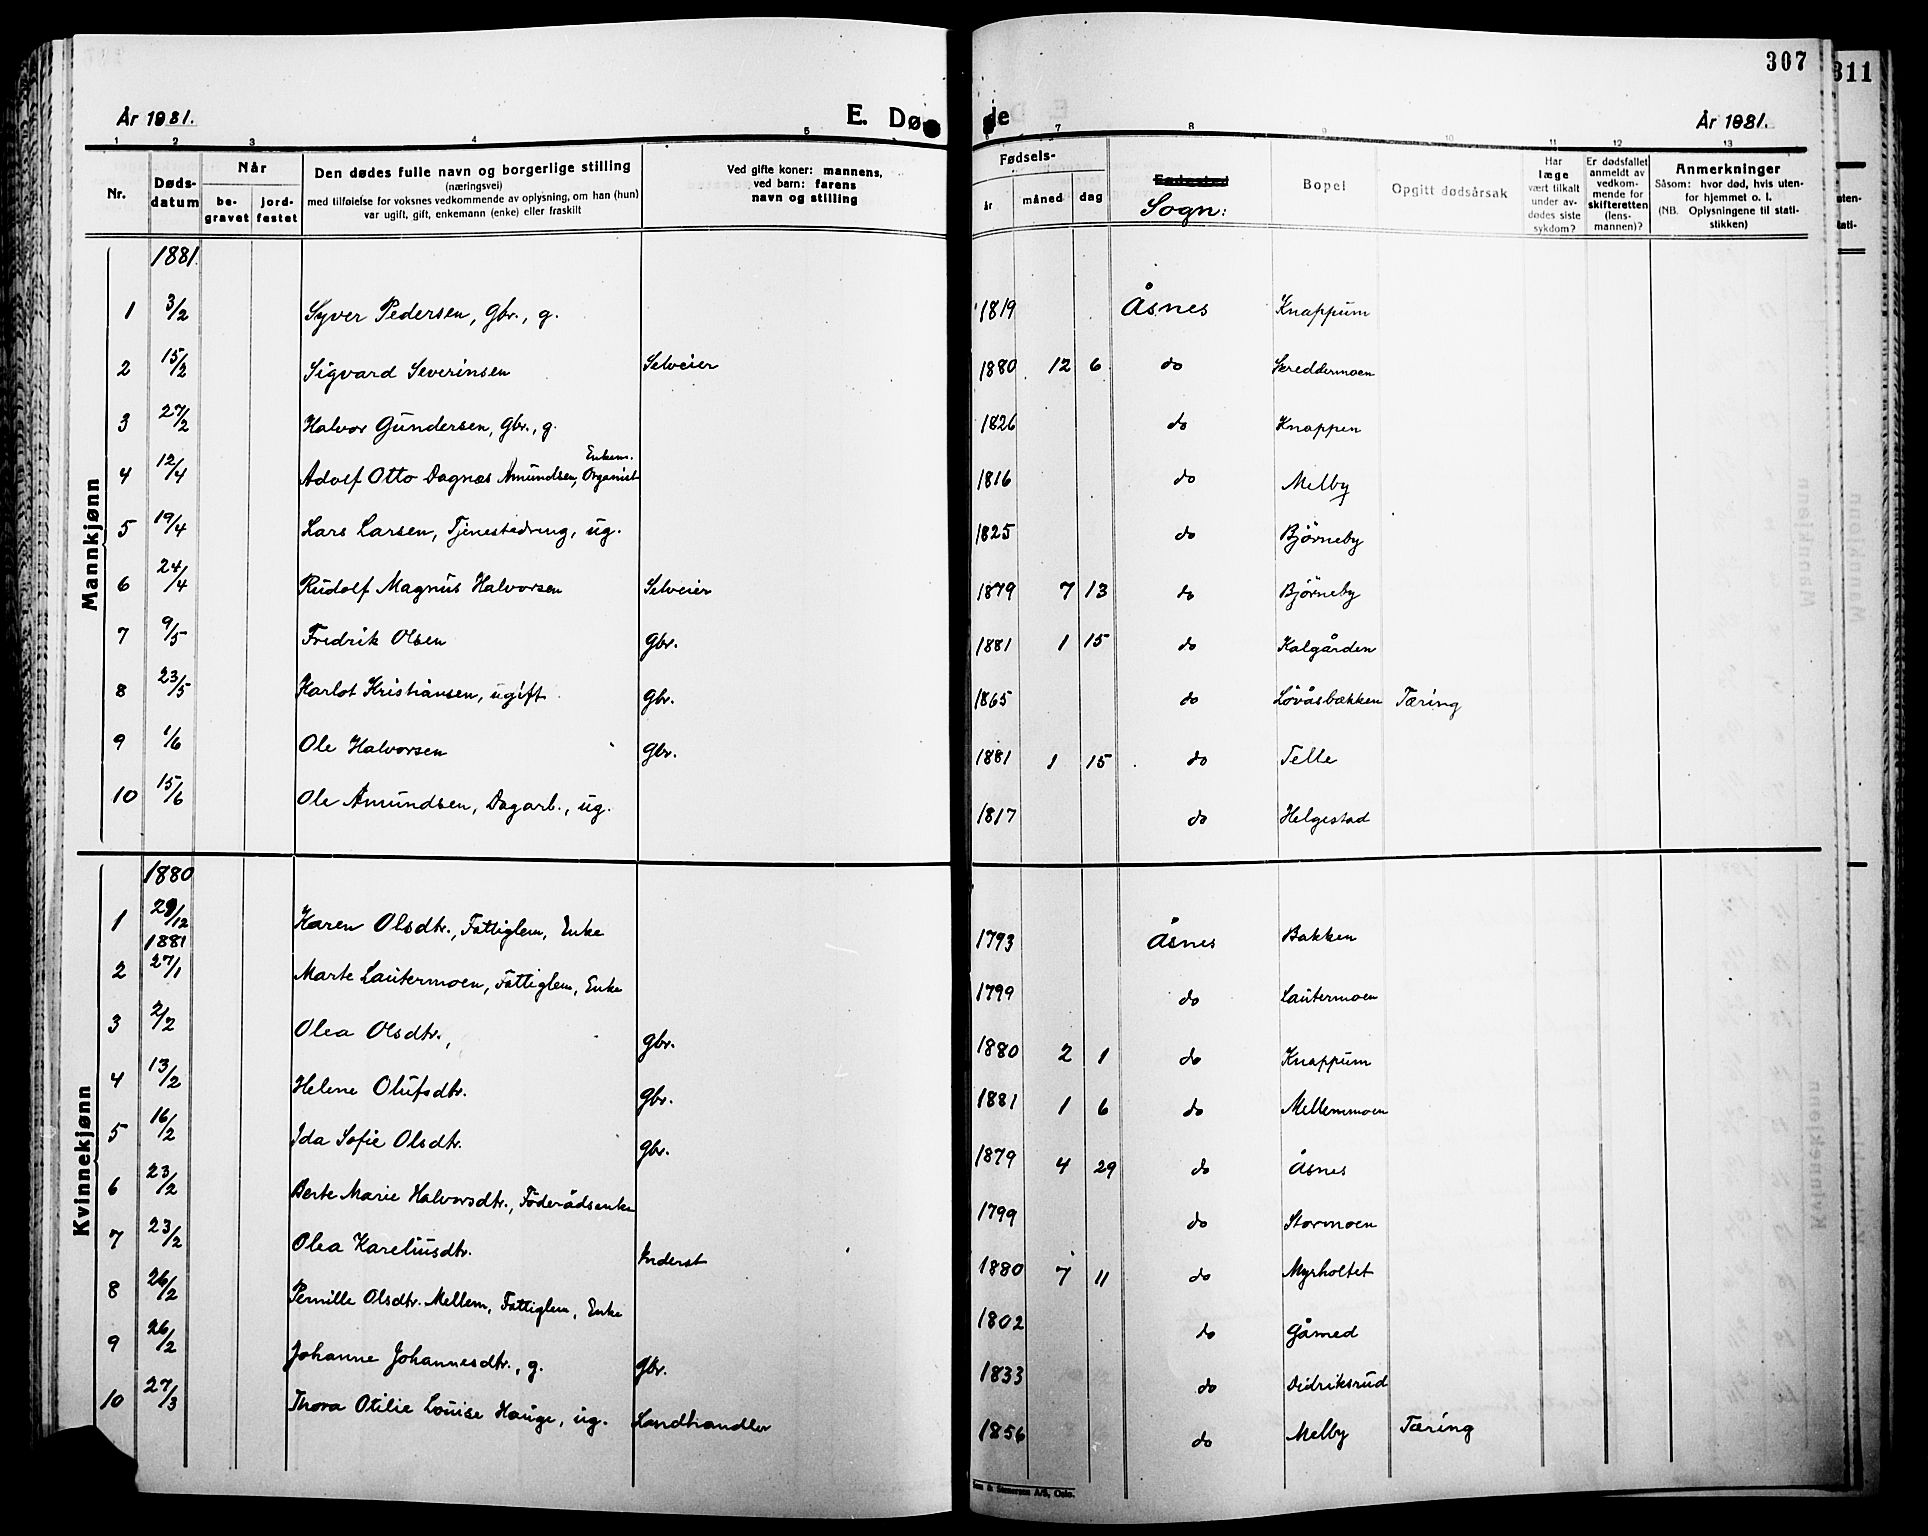 307
311
År 1881.
E. Dø de
År 1881.
1 2 3 4 5 6 7 8 9 10 11 12 13
Nr.
Døds-
datum
Når
be-
gravet
jord-
festet
Den dødes fulle navn og borgerlige stilling
(næringsvei)
med tilføielse for voksnes vedkommende av oplysning, om han (hun)
var ugift, gift, enkemann (enke) eller fraskilt
Ved gifte koner: mannens,
ved barn: farens
navn og stilling
Fødsels-
år måned dag
Fødested
Sogn:
Bopel
Opgitt dødsårsak
Har
læge
vært tilkalt
under av-
dødes siste
sykdom?
Er dødsfallet
anmeldt av
vedkom-
mende for
skifteretten
(lens-
mannen)?
Anmerkninger
Såsom: hvor død, hvis uten-
for hjemmet o. l.
(NB. Oplysningene til stati-
stikken)
Mannkjønn
1881.
1 3/2 Syver Pedersen, Gbr., g. 1819 Åsnes Knappum
2 15/2 Sigvard Severinsen Selveier 1880 12 6 do Skreddermoen
3 27/2 Halvor Gundersen, Gbr., g. 1826 do Knappen
Enkem.
4 12/4 Adolf Otto Dagnæs Amundsen, Organist 1816 do Melby
5 19/4 Lars Larsen, Tjenestedreng, ug. 1825 do Bjørneby
6 24/4 Rudolf Magnus Halvorsen Selveier 1879 7 13 do Bjørneby
7 9/5 Fredrik Olsen Gbr. 1881 1 15 do Kalgården
8 23/5 Karlot Kristiansen, ugift Gbr. 1865 do Lövåsbækken Tæring
9 1/6 Ole Halvorsen Gbr. 1881 1 15 do Telle
10 15/6 Ole Amundsen, Dagarb., ug. 1817 do Helgestad
Kvinnekjønn
1880
1 29/12 Karen Olsdtr., Fattiglem, Enke 1793 Åsnes Bakken
1881
2 27/1 Marte Lautermoen, Fattiglem, Enke 1799 do Lautermoen
3 2/2 Olea Olsdtr., Gbr. 1880 2 1 do Knappum
4 13/2 Helene Olufsdtr. Gbr. 1881 1 6 do Mellemmoen
5 16/2 Ida Sofie Olsdtr. Gbr. 1879 4 29 do Åsnes
6 23/2 Berte Marie Halvorsdtr., Föderådsenke 1799 do Stormoen
7 23/2 Olea Kareliusdtr. Inderst 1880 7 11 do Myrholtet
8 26/2 Pernille Olsdtr. Mellem, Fattiglem, Enke 1802 do Gåmed
9 26/2 Johanne Johannesdtr., g. Gbr. 1833 do Didriksrud
10 27/3 Thora Otilie Louise Hauge, ug. Landhandler 1856 do Melby Tæring